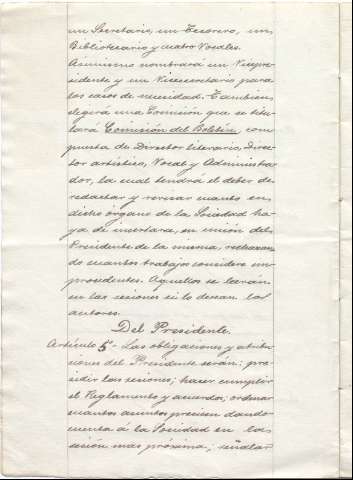 un Secretario, un Tesorero, un
Bibliotecario y cuatro Vocales.
Asimismo nombrará un Vicepre-
sidente y un Vicesecretario para
los casos de necesidad. También
elegirá una Comisión que se titu-
lará Comisión del Boletín, com
puesta de Director literario, Direc-
tor artístico, Vocal y Administra-
dor, la cual tendrá el deber de
redactar y revisar cuanto en
dicho órgano de la Sociedad ha-
ya de insertarse, en unión del
Presidente de la misma, rechazan-
do cuantos trabajos considere im-
procedentes. Aquellos se leerán
en las sesiones si lo desean los
autores.
Del Presidente.
Artículo 5º- Las obligaciones y atribu-
ciones del Presidente serán: pre-
sidir las sesiones; hacer cumplir
el Reglamento y acuerdos; ordenar
cuantos asuntos precisen dando
cuenta á la Sociedad en la
sesión más próxima; señalar